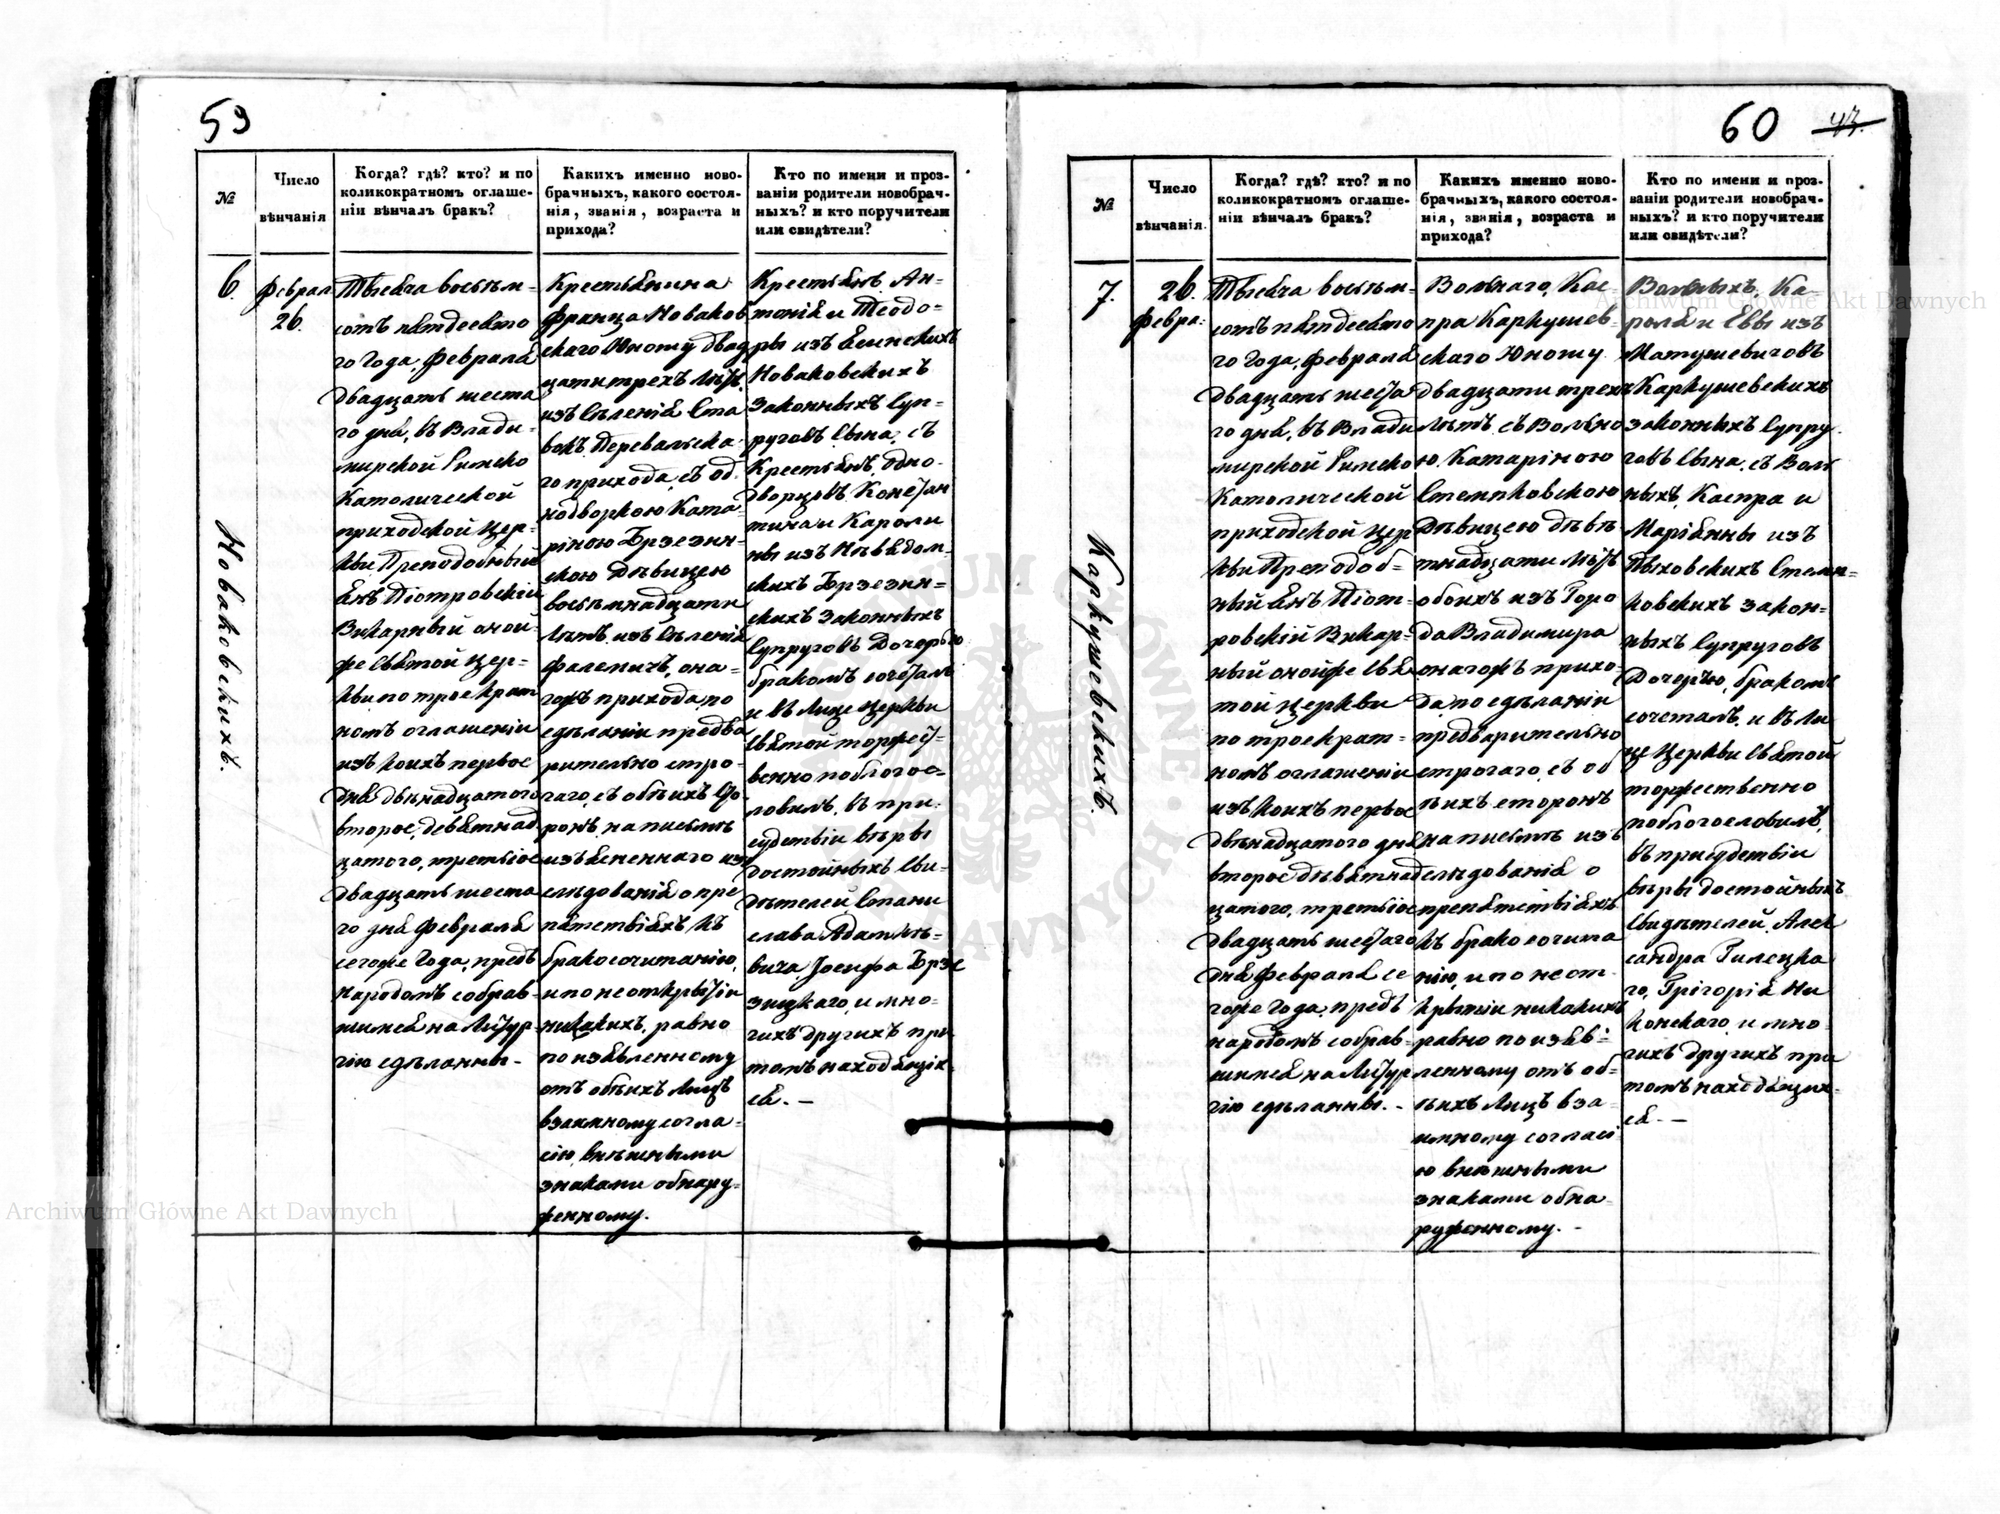 59
№
Число
вѣнчанія
Когда? гдѣ? кто? и по
коликократномъ оглаше-
ніи вѣнчалъ бракъ?
Какихъ именно ново-
брачныхъ, какого состоя-
нія, званія, возраста и
прихода?
Кто по имени и проз-
ваніи родители новобрач-
ныхъ? и кто поручители
или свидѣтели?
6.
Новаковскихъ.
Феврал
26.
Тысяча восѣм-
сотъ пятдесято
го Года, Февраля
двадцать шеста
го дня, въ Влади-
мирской Римско
Католической
приходской Цер-
кви Преподобный
Янъ Піотровскій
Викарный оной-
же Святой Цер-
кви по троекрат
номъ оглашеніи
изъ коихъ первое
дня двѣнадцатого
второе, девятнад
цатого, третьіое
двадцать шеста
го дня Февраля
сегоже Года, предъ
народомъ собрав-
шимся на Литур-
гію сдѣланны-
Крестьянина
Франца Новаков
скаго Юношу двад
цати трехъ лѣтъ
изъ Селенія Ста
вокъ Перевальска
го прихода, съ од
нодворкою Ката-
ріною Брзезин-
скою Дѣвицею
восѣмнадцати
лѣтъ изъ Селенія
Фалемичъ, она-
гожъ прихода, по
сдѣланіи предва
рительно стро-
гаго, съ обѣихъ сто-
ронъ, на письмѣ
изъясненнаго изъ
слѣдованія о пре
пятствіяхъ къ
бракосочитанію,
и по не открытіи
никакихъ, равно
по изъявленному
отъ обѣихъ Лицъ
взаимному согла-
сію внѣшными
знаками обнару-
женному.
Крестьянъ Ан-
тонія и Теодо-
ры изъ Ясинскихъ
Новаковскихъ
Законныхъ Суп-
руговъ Сына, съ
Крестьянъ, одно-
дворцовъ Констан
тина и Кароли
ны изъ Нѣвядом-
скихъ Брзезин-
скихъ Законныхъ
Супруговъ Дочерью
бракомъ сочеталъ
и въ Лице Церкви
Святой торжест-
венно поблогос-
ловилъ, въ при-
судствіи вѣры
достойныхъ Сви-
дѣтелей Стани
слава Адамкѣ-
вича, Іосифа Брзе
зицкаго, и мно-
гихъ другихъ при
томъ находящіх-
ся. -
60
43.
№
Число
вѣнчанія.
Когда? гдѣ? кто? и по
коликократномъ оглаше-
ніи вѣнчалъ бракъ?
Какихъ именно ново-
брачныхъ, какого состоя-
нія, званія, возраста и
прихода?
Кто по имени и проз-
ваніи родители новобрач-
ныхъ? и кто поручители
или свидѣтели?
7.
Каркушевскихъ.
26.
Февра:
Тысяча восѣм-
сотъ пятдесято
го Года, Февраля
двадцать шеста
го дня, въ Влади
мирской Римско
Католической
приходской Цер
кви Преподоб-
ный Янъ Піот-
ровскій Викар-
ный онойже Свя
той Церкви
по троекрат-
номъ оглашеніи
изъ коихъ первое
двѣнадцатого дня
второе дѣвятнад
цатого, третьіое
двадцать шестаго
дня Февраля се
гоже Года, предъ
народомъ собрав-
шимся на Литур
гію сдѣланны. -
Вольнаго, Кас-
пра Каркушев-
скаго Юношу
двадцати трехъ
лѣтъ съ Вольно
ю Катаріною
Стемпковскою
Дѣвицею дѣвѣ
тнадцати лѣтъ
обоихъ изъ Горо
да Владимира
онагожъ прихо-
да, по сдѣланіи
предварительно
строгаго, съ об
ѣихъ сторонъ
на письмѣ изъ
слѣдованія о
препятствіяхъ
къ брако сочита
нію, и по не от-
крытіи никакихъ
равно по изъяв-
ленному отъ об-
ѣихъ Лицъ вза-
имному согласі
ю внѣшными
знаками обна-
руженному. -
Вольныхъ, Ка-
роля и Евы изъ
Матушевичовъ
Каркушевскихъ
законныхъ Супру-
говъ Сына, съ Воль
ныхъ, Каспра и
Маріянны изъ
Пыховскихъ Стемп-
ковскихъ закон-
ныхъ Супруговъ
Дочерью, бракомъ
сочеталъ, и въ Ли
це Церкви Святой
торжественно
поблогословилъ,
въ присудствіи
вѣры достойныхъ
Свидѣтелей, Алек
сандра Гилецка
го, Грігорія Ни
конскаго, и мно-
гихъ другихъ при
томъ находящих-
ся. -
Archiwum Główne Akt Dawnych
Archiwum Główne Akt Dawnych